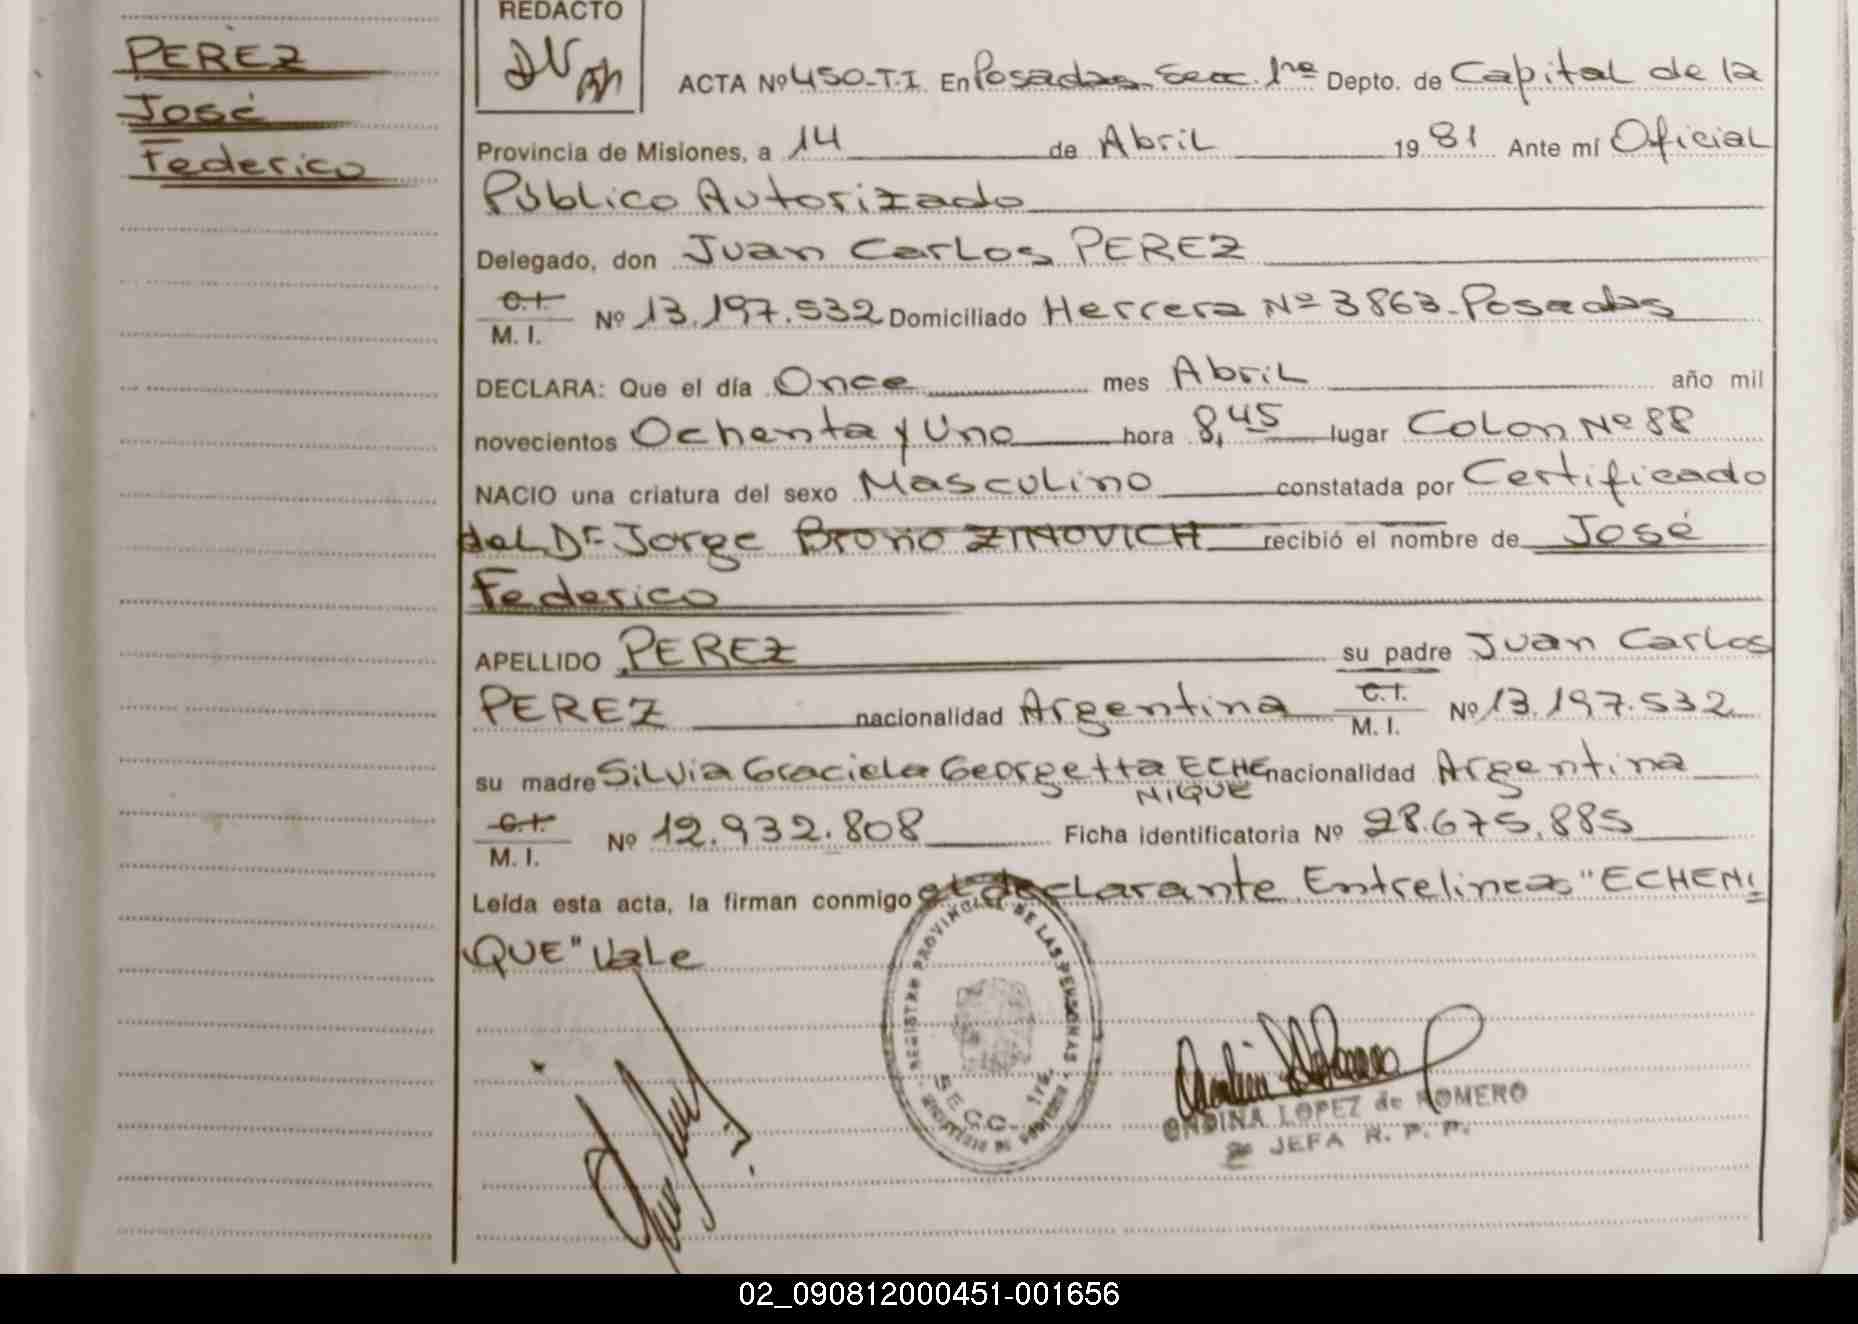 PEREZ
José
Federico
REDACTO
ACTA Nº 450-T.I. En Posadas Secc. 1ra Depto. de Capital de la
Provincia de Misiones, a 14 de Abril 1981 Ante mí Oficial
Público Autorizado
Delegado, don Juan Carlos PEREZ
C.I.
M. I. Nº 13.197.532 Domiciliado Herrera Nº 3863-Posadas
DECLARA: Que el día Once mes Abril año mil
novecientos Ochenta y Uno hora 8,45 lugar Colon Nº 88
NACIO una criatura del sexo Masculino constatada por Certificado
del Dr. Jorge ZINOVICH recibió el nombre de José
Federico
APELLIDO PEREZ su padre Juan Carlos
PEREZ nacionalidad Argentina C.I.
M. I. Nº 13.197.532
su madre Silvia Graciela Georgetta ECHE nacionalidad Argentina
NIQUE
C.I.
M. I. Nº 12.932.808 Ficha identificatoria Nº 28.675.885
Leída esta acta, la firman conmigo el declarante. Entrelineas "ECHENI
QUE" Vale
REGISTRO PROVINCIAL DE LAS PERSONAS
SECC. 1ra.
ONDINA LOPEZ de ROMERO
JEFA R. P. P.
02_090812000451-001656